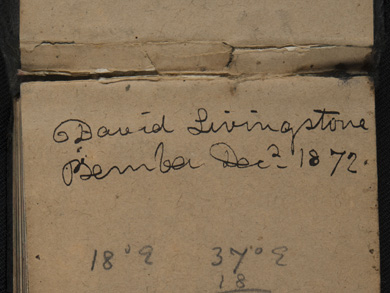 David Livingstone
Bemba Decr 1872.
18°E 37°E
18